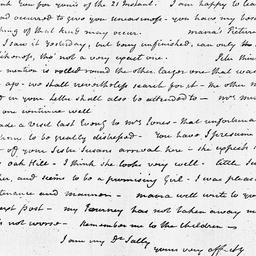 you for yours of the 21 Instant. I am happy to lea
nd occurred to give you uneasiness - you have my bes
thing of that kind may occur. mama's Picture
I saw it yesterday, but being unfinished, can only tha
likeness, tho not a very upset one.
mention is rolled round the other larger one that was
ago - we shall nevertheless search for it - the other m
d in your letter shall also be attended to - Mrs
on continue well
ade a visit last Eveng to Mrs Jones - that unfortuna
to be really distressed - You have I presume
of your Sister Susans arrival here - she expects
to oak Hill - I think she looks very well - little
her, and seems to be a promising Girl - I was pleas
tenance and manner - mama will write to yo
next post - my Journey has not taken away m
is not worse - Remember me to the children -
I am my Dr Sally
yours very affty